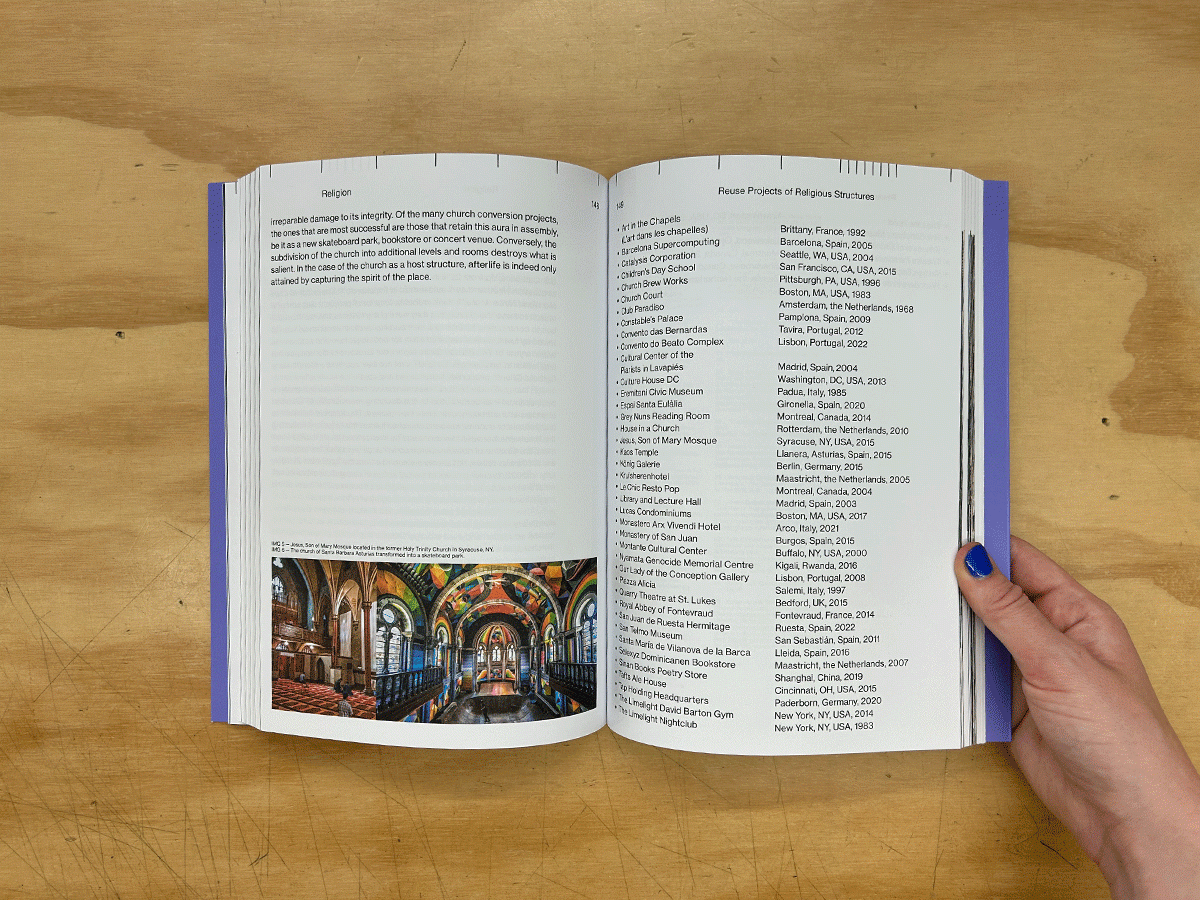 Religion
148
irreparable damage to its integrity. Of the many church conversion projects,
the ones that are most successful are those that retain this aura in assembly,
be it as a new skateboard park, bookstore or concert venue. Conversely, the
subdivision of the church into additional levels and rooms destroys what is
salient. In the case of the church as a host structure, afterlife is indeed only
attained by capturing the spirit of the place.
IMG 5 — Jesus, Son of Mary Mosque located in the former Holy Trinity Church in Syracuse, NY.
IMG 6 — The church of Santa Barbara Asturias transformed into a skateboard park.
149
Reuse Projects of Religious Structures
• Art in the Chapels
(L'art dans les chapelles) Brittany, France, 1992
• Barcelona Supercomputing Barcelona, Spain, 2005
• Catalysis Corporation Seattle, WA, USA, 2004
• Children's Day School San Francisco, CA, USA, 2015
• Church Brew Works Pittsburgh, PA, USA, 1996
• Church Court Boston, MA, USA, 1983
• Club Paradiso Amsterdam, the Netherlands, 1968
• Constable's Palace Pamplona, Spain, 2009
• Convento das Bernardas Tavira, Portugal, 2012
• Convento do Beato Complex Lisbon, Portugal, 2022
• Cultural Center of the
Piarists in Lavapiés Madrid, Spain, 2004
• Culture House DC Washington, DC, USA, 2013
• Eremitani Civic Museum Padua, Italy, 1985
• Espai Santa Eulàlia Gironella, Spain, 2020
• Grey Nuns Reading Room Montreal, Canada, 2014
• House in a Church Rotterdam, the Netherlands, 2010
• Jesus, Son of Mary Mosque Syracuse, NY, USA, 2015
• Kaos Temple Llanera, Asturias, Spain, 2015
• König Galerie Berlin, Germany, 2015
• Kruisherenhotel Maastricht, the Netherlands, 2005
• Le Chic Resto Pop Montreal, Canada, 2004
• Library and Lecture Hall Madrid, Spain, 2003
• Lucas Condominiums Boston, MA, USA, 2017
• Monastero Arx Vivendi Hotel Arco, Italy, 2021
• Monastery of San Juan Burgos, Spain, 2015
• Montante Cultural Center Buffalo, NY, USA, 2000
• Nyamata Genocide Memorial Centre Kigali, Rwanda, 2016
• Our Lady of the Conception Gallery Lisbon, Portugal, 2008
• Piazza Alicia Salemi, Italy, 1997
• Quarry Theatre at St. Lukes Bedford, UK, 2015
• Royal Abbey of Fontevraud Fontevraud, France, 2014
• San Juan de Ruesta Hermitage Ruesta, Spain, 2022
• San Telmo Museum San Sebastián, Spain, 2011
• Santa María de Vilanova de la Barca Lleida, Spain, 2016
• Selexyz Dominicanen Bookstore Maastricht, the Netherlands, 2007
• Sinan Books Poetry Store Shanghai, China, 2019
• Tafts Ale House Cincinnati, OH, USA, 2015
• Tap Holding Headquarters Paderborn, Germany, 2020
• The Limelight David Barton Gym New York, NY, USA, 2014
• The Limelight Nightclub New York, NY, USA, 1983